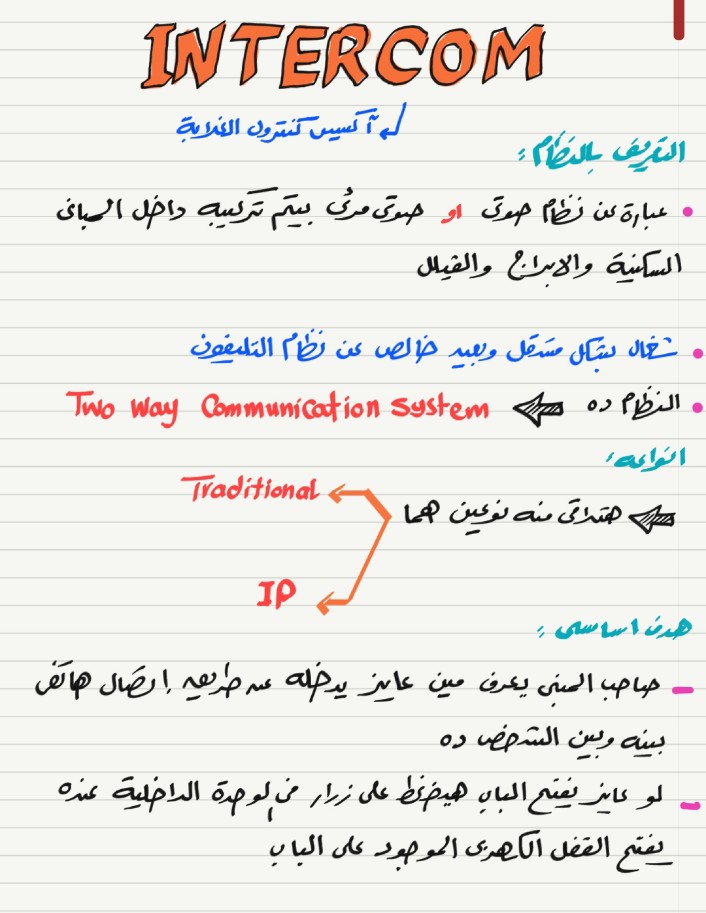 INTERCOM
أكسيس كنترول الغلابة
التعريف بالنظام :
• عبارة عن نظام صوتى او صوتى مرئى بيتم تركيبه داخل المبانى
السكنية والابراج والفيلل
• شغال بشكل مستقل وبعيد خالص عن نظام التليفون
• النظام ده Two Way Communication System
انواعه :
هتلاقى منه نوعين هما
Traditional
IP
هدف اساسى :
- صاحب المبنى يعرف مين عايز يدخله عن طريق إتصال هاتفى
بينه وبين الشخص ده
- لو عايز يفتح الباب هيضغط على زرار فى الوحدة الداخلية عنده
يفتح القفل الكهربى الموجود على الباب